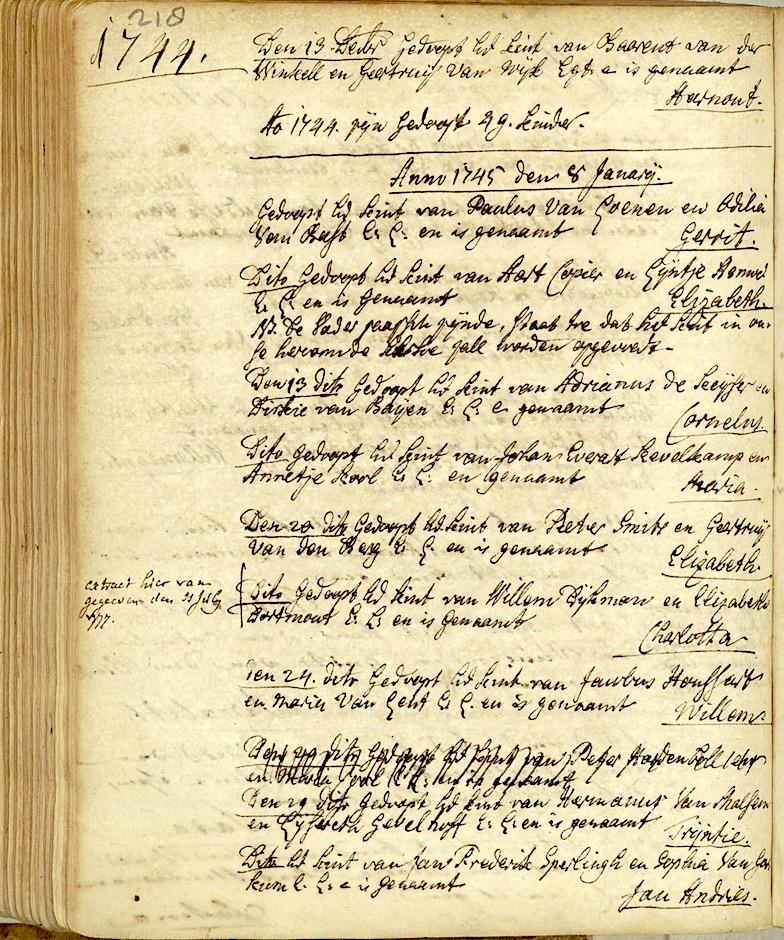 218
1744.
Den 13 Decbr Gedoopt het kint van Baarent van der
Winkell en Geertruij van Wijk Egt. e is genaamt
Aarnout.
Ao 1744. zijn Gedoopt 29. kinder.
Anno 1745 den 8 Janarij.
Gedoopt het kint van Paulus Van Coenen en Odilia
van E: L: en is genaamt
Gerrit.
Dito Gedoopt het kint van Aart Copier en Cijntje
E: L: en is Genaamt
Elizabeth.
NB. de Vader paapsch zijnde, staat toe dat het kint in on-
se hervormde kerke zall worden opgevoedt.
Den 13 dito Gedoopt het kint van Adrianus de en
van Baijen E: L: e genaamt
Cornelus.
Dito Gedoopt het kint van Johan Everart Kevelkamp en
Annetje Kool E: L: en genaamt
Maria.
Den 20 dito Gedoopt het kint van Peter Smits en Geertruij
van den Berg E: L: en is genaamt
Elizabeth.
extract hier van
gegeven den 31 July
777.
Dito Gedoopt het kint van Willem Dijkman en Elizabeth
E: L: en is Genaamt
Charlotta
den 24. dito Gedoopt het kint van Jacobus
en Maria Van Gent E: L: en is genaamt
Willem.
Den 29 dito Gedoopt het kint van Peter
en Maria E: L: en is genaamt
Den 29 dito Gedoopt het kint van Hermanus Van
en Lijsbeth Gevelhoff E: L: en is genaamt
Trijntie.
Dito het kint van Jan Frederik Sperlingh en Sophia Van
E: L: e is Genaamt
Jan Andries.